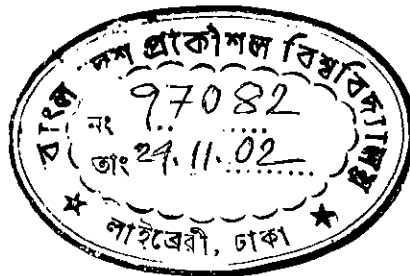 বাংলাদেশ প্রকৌশল বিশ্ববিদ্যালয়
নং 97082
তাং 24.11.02
★ লাইব্রেরী, ঢাকা ★